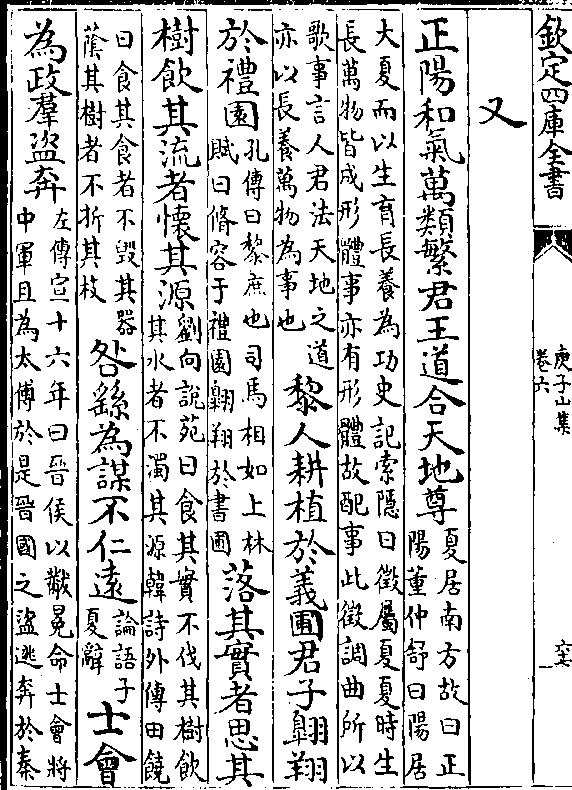 欽定四庫全書
庾子山集
卷六
又
正陽和氣萬類繁君王道合天地尊
夏居南方故曰正
陽董仲舒曰陽居
大夏而以生育長養為功史記索隱曰徵屬夏夏時生
長萬物皆成形體事亦有形體故配事此徵調曲所以
歌事言人君法天地之道
亦以長養萬物為事也
黎人耕植於義圃君子翺翔
於禮園
孔傳曰黎庶也司馬相如上林
賦曰脩容于禮園翺翔於書圃
落其實者思其
樹飲其流者懷其源
劉向說苑曰食其實不伐其樹飲
其水者不濁其源韓詩外傳田饒
曰食其食者不毀其器
蔭其樹者不折其枝
咎繇為謀不仁遠
論語子
夏辭
士會
為政羣盜奔
左傳宣十六年曰晉侯以黻冕命士會將
中軍且為太傅於是晉國之盜逃奔於秦